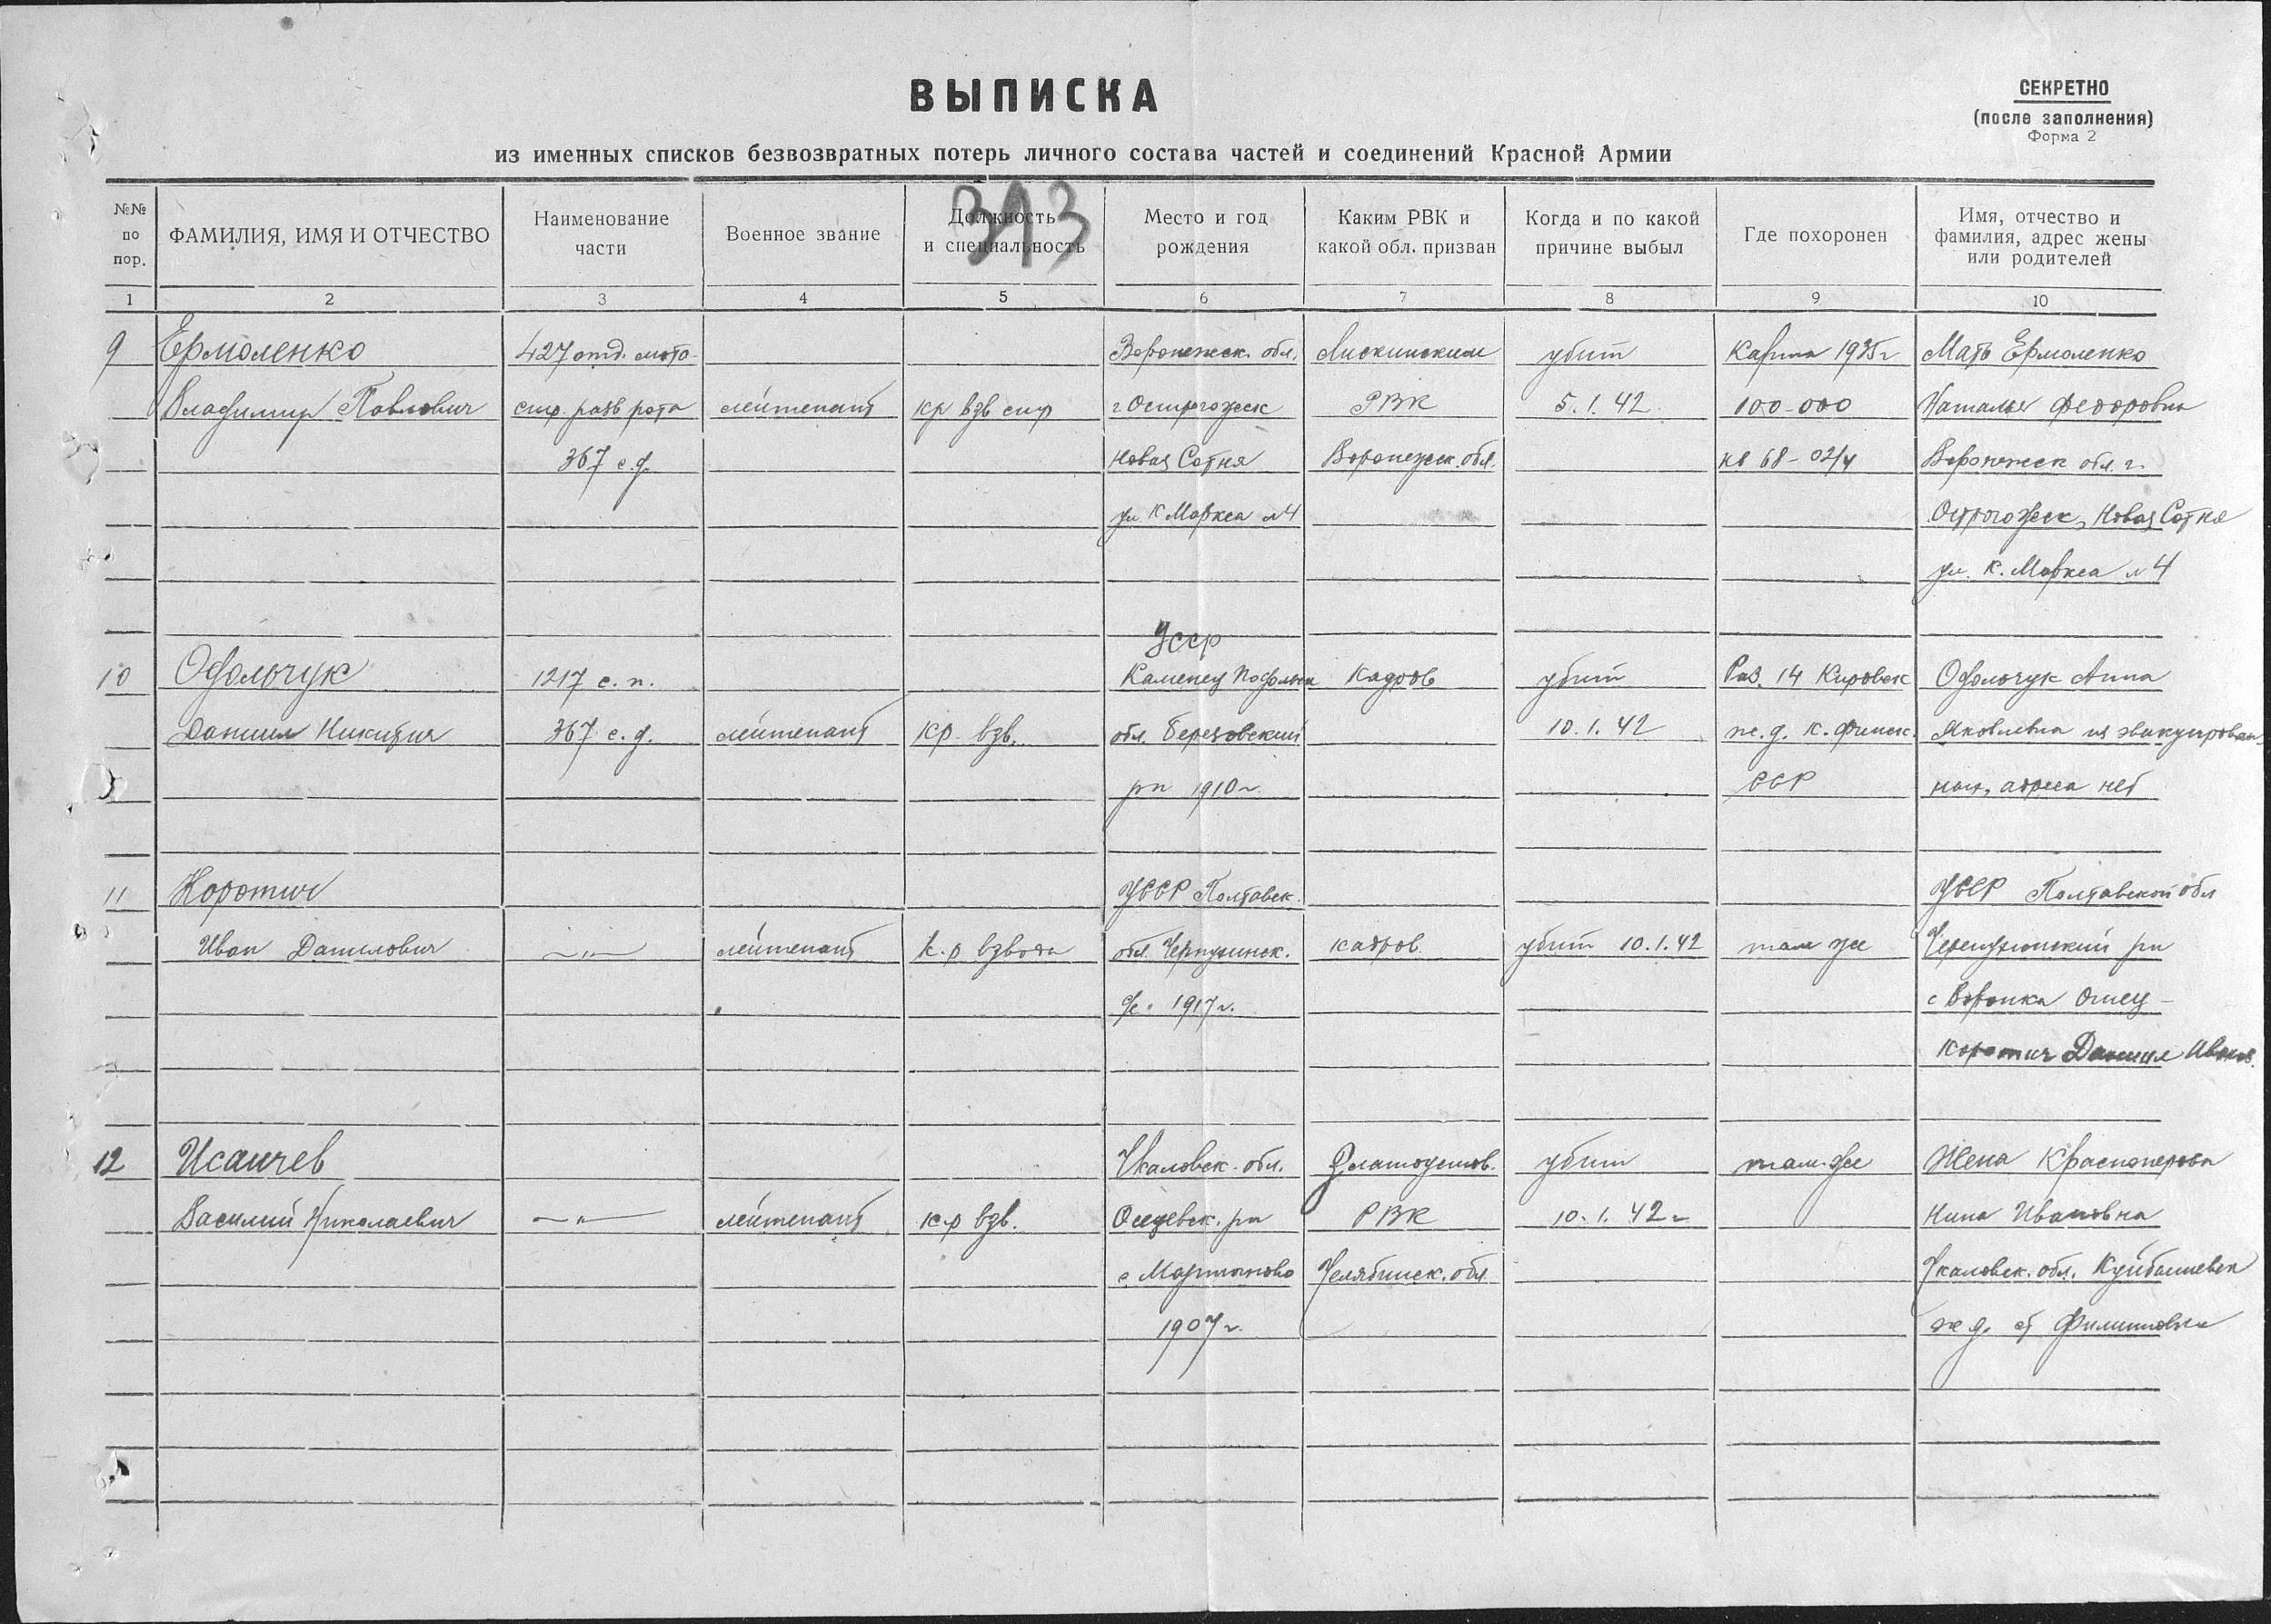 ВЫПИСКА
СЕКРЕТНО
(после заполнения)
Форма 2
из именных списков безвозвратных потерь личного состава частей и соединений Красной Армии
313
№№ по пор.
ФАМИЛИЯ, ИМЯ И ОТЧЕСТВО
Наименование части
Военное звание
Должность и специальность
Место и год рождения
Каким РВК и какой обл. призван
Когда и по какой причине выбыл
Где похоронен
Имя, отчество и фамилия, адрес жены или родителей
1 2 3 4 5 6 7 8 9 10
9 Ермоленко 427 отд. мото- Воронежск. обл. Лискинским убит Карта 1935г Мать Ермоленко
Владимир Павлович стр. разв рота лейтенант кр взв стр г Острогожск РВК 5.1.42 100-000 Наталья Федоровна
367 с.д. Новая Сотня Воронежск. обл. кв 68-02/4 Воронежск обл. г.
ул К Маркса №4 Острогожск, Новая Сотня
ул. К. Маркса №4
УССР
10 Одольчук 1217 с.п. Каменец Подольск Кадров убит Раз. 14 Кировск Одольчук Анна
Даниил Никитич 367 с.д. лейтенант кр. взв. обл. Березовский 10.1.42 ж.д. К. Финск. Яковлевна из эвакуирован
рн 1910г ССР ных, адреса нет
11 Коротич УССР Полтавск. УССР Полтавской обл
Иван Данилович -"- лейтенант к-р взвода обл. кадров убит 10.1.42 там же рн
1917г. с Воронка Отец -
Коротич Даниил Иванов.
12 Исаичев Чкаловск. обл. Златоустов. убит там-же Жена Красноперова
Василий Николаевич -"- лейтенант к-р взв. рн РВК 10.1.42г Нина Ивановна
с Мартыново Челябинск. обл Чкаловск. обл. Куйбышевск
1907г. ж д. ст Филипповка